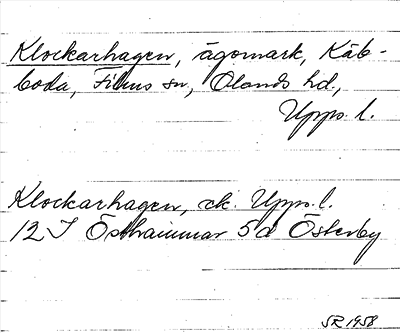 Klockarhagen, ägomark, Käb-
boda, Films sn, Olands hd.,
Upps. l.
Klockarhagen, ek. Upps. l.
12 I Östhammar 5 d Österby
SR 1958